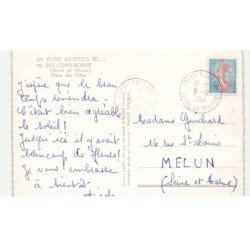 EN AVION AU-DESSUS DE...
BRIE-COMTE-ROBERT
(Seine et Marne)
Place des Fêtes
J'espère que le beau
temps reviendra !
C'était bien agréable
le soleil !
Jusqu'ici il y avait
beaucoup de fleurs !
Je vous embrasse
à bientôt
Madame Guichard
16 rue St
MELUN
(Seine et Marne)